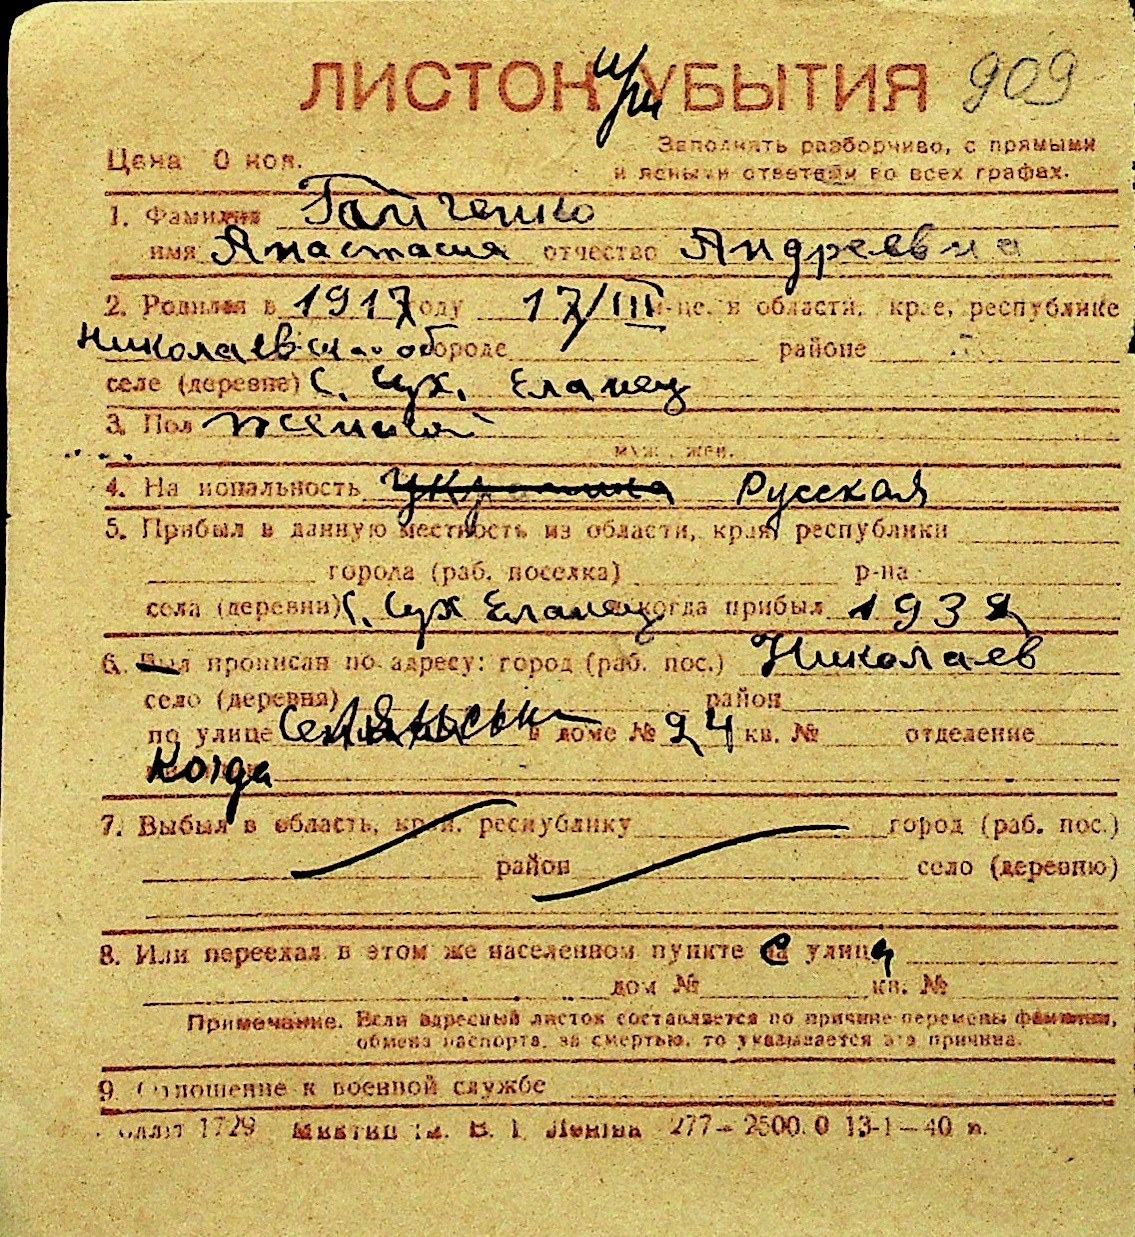 ЛИСТОК при УБЫТИЯ 909
Цена 0 коп.
Заполнять разборчиво, с прямыми
и ясными ответами во всех графах.
1. Фамилия Гайченко
имя Анастасия отчество Андреевна
2. Родился в 1917 году 17/III м-це. в области, крае, республике
Николаевская об городе районе
селе (деревне) С. Сух. Еланец
3. Пол женский
муж., жен.
4. Национальность Украинка Русская
5. Прибыл в данную местность из области, края, республики
города (раб. поселка) р-на
села (деревни) С. Сух Еланец и когда прибыл 1932
6. Был прописан по адресу: город (раб. пос.) Николаев
село (деревня) район
по улице в доме № 24 кв. № отделение
Когда
7. Выбыл в область, край, республику город (раб. пос.)
район село (деревню)
8. Или переехал в этом же населенном пункте с улицы
дом № кв. №
Примечание. Если адресный листок составляется по причине перемены фамилии,
обмена паспорта, за смертью, то указывается эта причина.
9. Отношение к военной службе
1729 В. І. Леніна 277—2500.0 13-1—40 п.